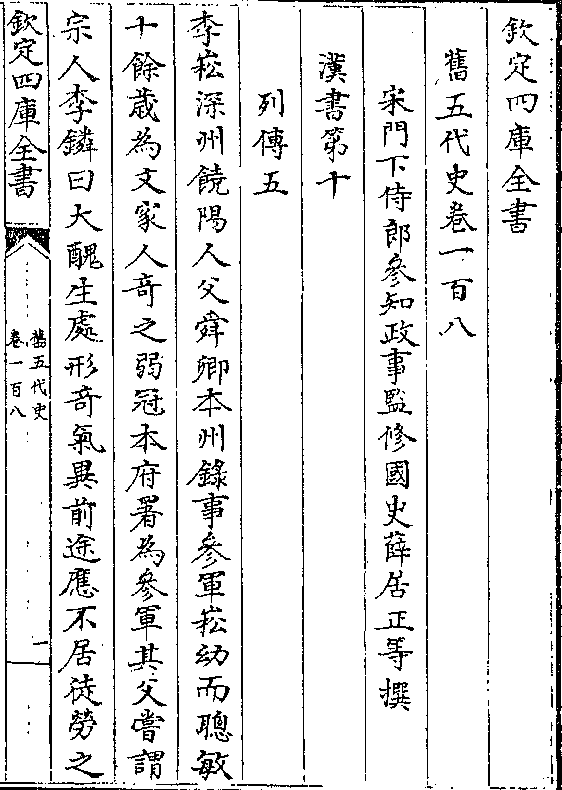 欽定四庫全書
舊五代史卷一百八
宋門下侍郎參知政事監修國史薛居正等撰
漢書第十
列傳五
李崧深州饒陽人父舜卿本州錄事參軍崧幼而聰敏
十餘歲為文家人奇之弱冠本府署為參軍其父嘗謂
宗人李鏻曰大醜生處形奇氣異前途應不居徒勞之
欽定四庫全書
舊五代史
卷一百八
一